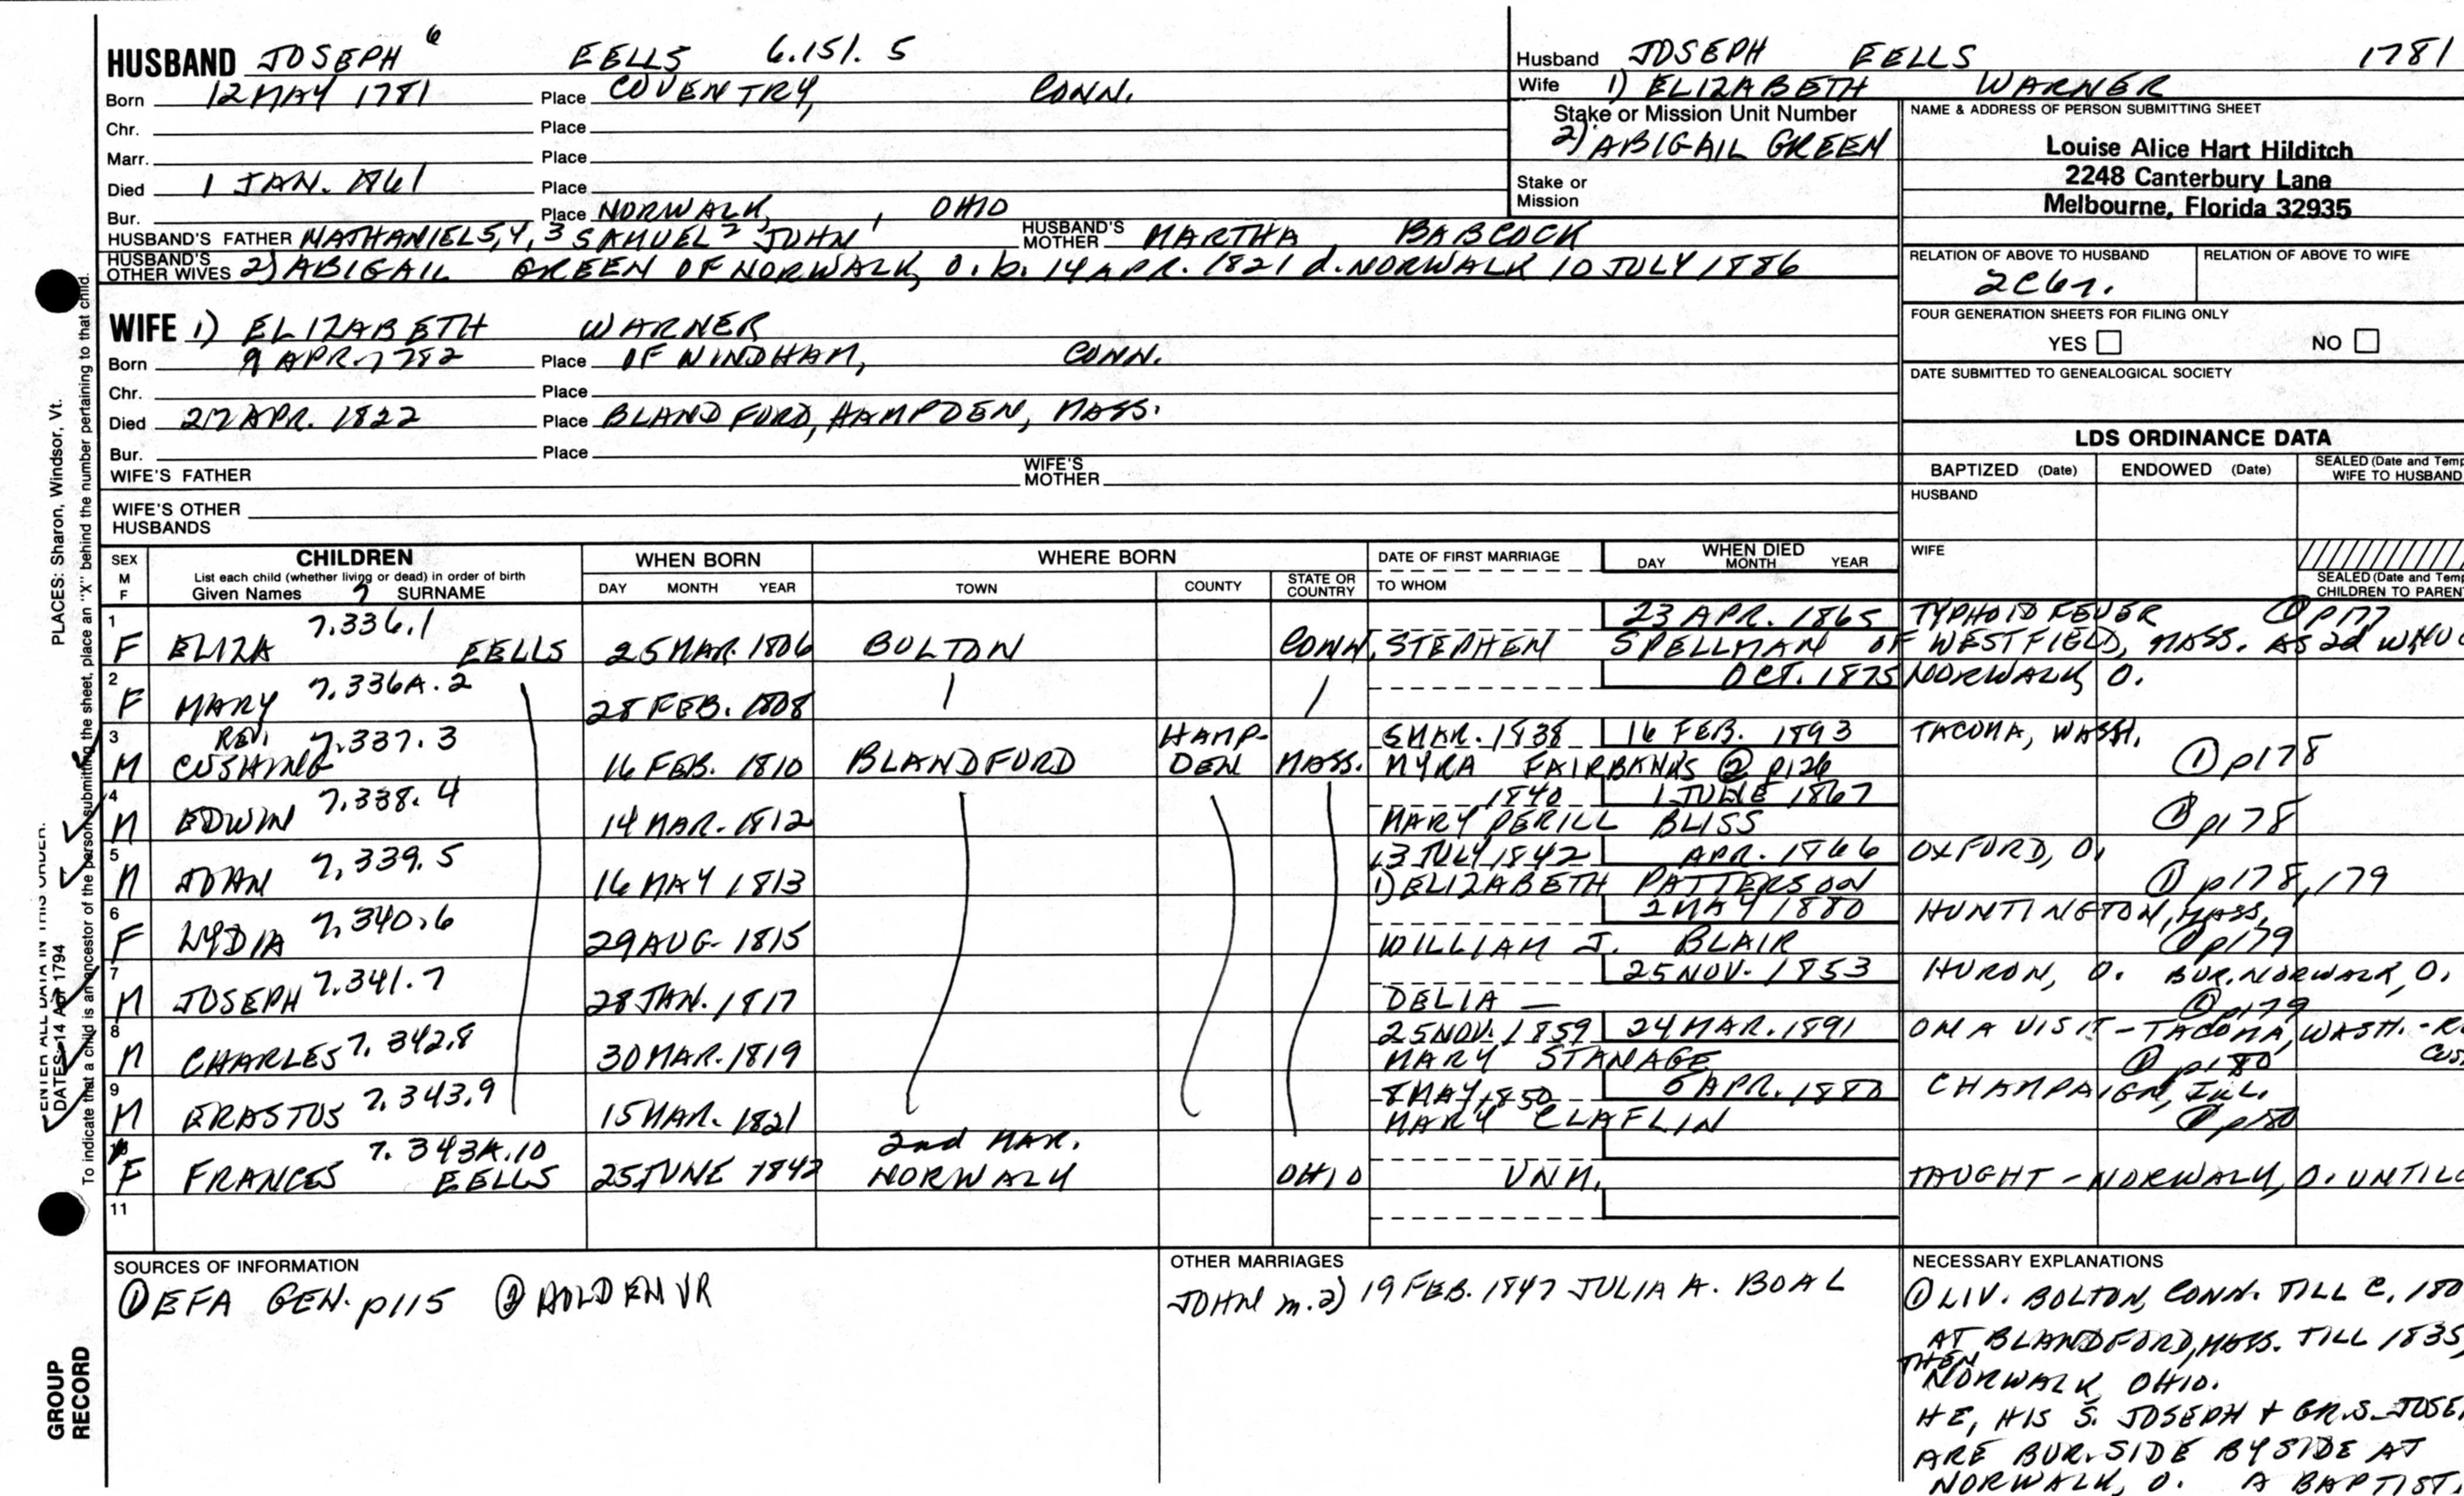 HUSBAND JOSEPH 6 EELLS 6.151.5
Born 12 MAY 1781 Place COVENTRY, CONN.
Chr. Place
Marr. Place
Died 1 JAN. 1861 Place
Bur. Place NORWALK, OHIO
HUSBAND'S FATHER NATHANIEL 5,4,3 SAMUEL 2 JOHN 1 HUSBAND'S MOTHER MARTHA BABCOCK
HUSBAND'S OTHER WIVES 2) ABIGAIL GREEN OF NORWALK, O. b. 14 APR. 1821 d. NORWALK 10 JULY 1886
WIFE 1) ELIZABETH WARNER
Born 9 APR. 1782 Place OF WINDHAM, CONN.
Chr. Place
Died 27 APR. 1822 Place BLANDFORD, HAMPDEN, MASS.
Bur. Place
WIFE'S FATHER WIFE'S MOTHER
WIFE'S OTHER HUSBANDS
Husband JOSEPH EELLS 1781
Wife 1) ELIZABETH WARNER
Stake or Mission Unit Number
2) ABIGAIL GREEN
Stake or Mission
NAME & ADDRESS OF PERSON SUBMITTING SHEET
Louise Alice Hart Hilditch
2248 Canterbury Lane
Melbourne, Florida 32935
RELATION OF ABOVE TO HUSBAND RELATION OF ABOVE TO WIFE
2C6r.
FOUR GENERATION SHEETS FOR FILING ONLY
YES NO
DATE SUBMITTED TO GENEALOGICAL SOCIETY
LDS ORDINANCE DATA
BAPTIZED (Date) ENDOWED (Date) SEALED (Date and Temp
WIFE TO HUSBAND
HUSBAND
WIFE
SEALED (Date and Temp
CHILDREN TO PAREN
SEX M F CHILDREN WHEN BORN WHERE BORN DATE OF FIRST MARRIAGE WHEN DIED
List each child (whether living or dead) in order of birth
Given Names 7 SURNAME DAY MONTH YEAR TOWN COUNTY STATE OR COUNTRY TO WHOM DAY MONTH YEAR
1 7.336.1 23 APR. 1865 TYPHOID FEVER ① p177
F ELIZA EELLS 25 MAR. 1806 BOLTON CONN. STEPHEN SPELLMAN OF WESTFIELD, MASS. AS 2d
2 7.336A.2 OCT. 1875 NORWALK, O.
F MARY 28 FEB. 1808
3 REV. 7.337.3 HAMP- 5 MAR. 1838 16 FEB. 1893 TACOMA, WASH.
M CUSHING 16 FEB. 1810 BLANDFORD DEN MASS. MYRA FAIRBANKS ② p126 ① p178
4 7.338.4 1840 1 JUNE 1867
M EDWIN 14 MAR. 1812 MARY PERILL BLISS ① p178
5 7.339.5 13 JULY 1842 APR. 1866 OXFORD, O.
M JOHN 16 MAY 1813 1) ELIZABETH PATTERSON ① p178, 179
6 7.340.6 2 MAY 1880 HUNTINGTON, MASS.
F LYDIA 29 AUG. 1815 WILLIAM J. BLAIR ① p179
7 7.341.7 25 NOV. 1853 HURON, O. BUR. NORWALK, O.
M JOSEPH 28 JAN. 1817 DELIA — ① p179
8 7.342.8 25 NOV. 1859 24 MAR. 1891 ON A VISIT - TACOMA, WASH. -
M CHARLES 30 MAR. 1819 MARY STANAGE ① p180
9 7.343.9 8 MAY 1850 5 APR. 1880 CHAMPAIGN, ILL.
M ERASTUS 15 MAR. 1821 MARY CLAFLIN ① p180
10 7.343A.10 2nd MAR.
F FRANCES EELLS 25 JUNE 1842 NORWALK OHIO UNM. TAUGHT - NORWALK, O. UNTIL
11
SOURCES OF INFORMATION
① EFA GEN. p115 ② HOLDEN VR
OTHER MARRIAGES
JOHN m. 2) 19 FEB. 1847 JULIA A. BOAL
NECESSARY EXPLANATIONS
① LIV. BOLTON, CONN. TILL C. 180
AT BLANDFORD, MASS. TILL 1835,
THEN
NORWALK, OHIO.
HE, HIS S. JOSEPH + GR.S. JOSE
ARE BUR. SIDE BY SIDE AT
NORWALK, O. A BAPTIST.
PLACES: Sharon, Windsor, Vt.
To indicate that a child is an ancestor of the person submitting the sheet, place an "X" behind the number pertaining to that child.
ENTER ALL DATA IN THIS ORDER:
DATES: 14 Apr 1794
GROUP
RECORD